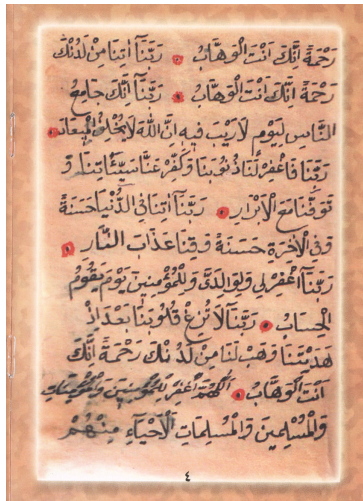 رَحْمَةً اِنَّكَ اَنْتَ الْوَهَّابُ رَبَّنَآ اٰتِنَا مِنْ لَدُنْكَ
رَحْمَةً اِنَّكَ اَنْتَ الْوَهَّابُ رَبَّنَآ اِنَّكَ جَامِعُ
النَّاسِ لِيَوْمٍ لَارَيْبَ فِيهِ اِنَّ اللّٰهَ لَا يُخْلِفُ الْمِيعَادَ
رَبَّنَا فَاغْفِرْ لَنَا ذُنُوبَنَا وَكَفِّرْ عَنَّا سَيِّئَاتِنَا وَ
تَوَفَّنَا مَعَ الْاَبْرَارِ رَبَّنَآ اٰتِنَا فِي الدُّنْيَا حَسَنَةً
وَفِي الْاٰخِرَةِ حَسَنَةً وَقِنَا عَذَابَ النَّارِ
رَبَّنَا اغْفِرْلِي وَلِوَالِدَيَّ وَلِلْمُؤْمِنِينَ يَوْمَ يَقُومُ
الْحِسَابُ رَبَّنَا لَاتُزِغْ قُلُوبَنَا بَعْدَ اِذْ
هَدَيْتَنَا وَهَبْ لَنَا مِنْ لَدُنْكَ رَحْمَةً اِنَّكَ
اَنْتَ الْوَهَّابُ اَللّٰهُمَّ اغْفِرْ لِلْمُؤْمِنِينَ وَالْمُؤْمِنَاتِ
وَالْمُسْلِمِينَ وَالْمُسْلِمَاتِ اَلْاَحْيَآءِ مِنْهُمْ
٤